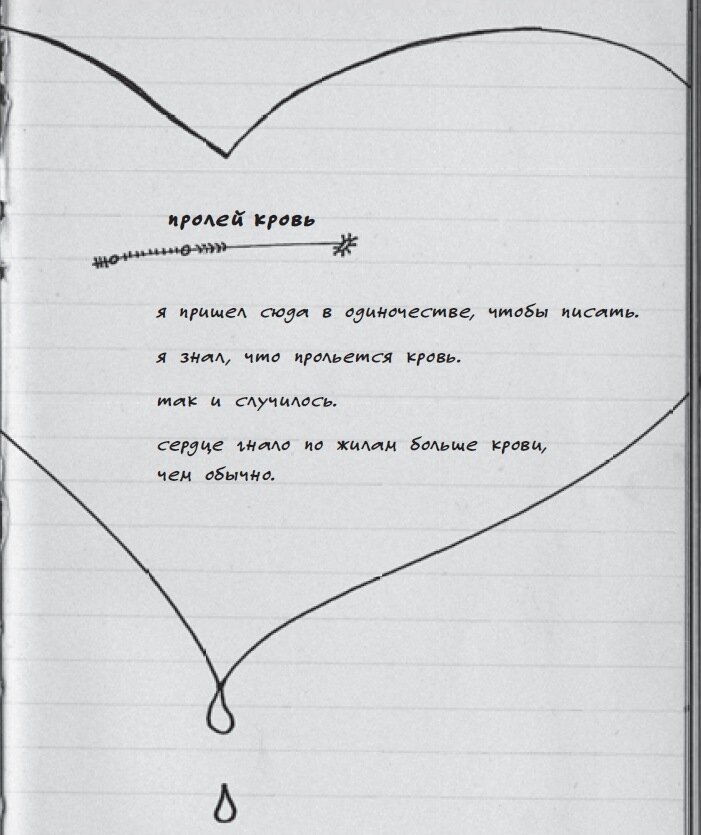 пролей кровь
я пришел сюда в одиночестве, чтобы писать.
я знал, что прольется кровь.
так и случилось.
сердце гнало по жилам больше крови,
чем обычно.